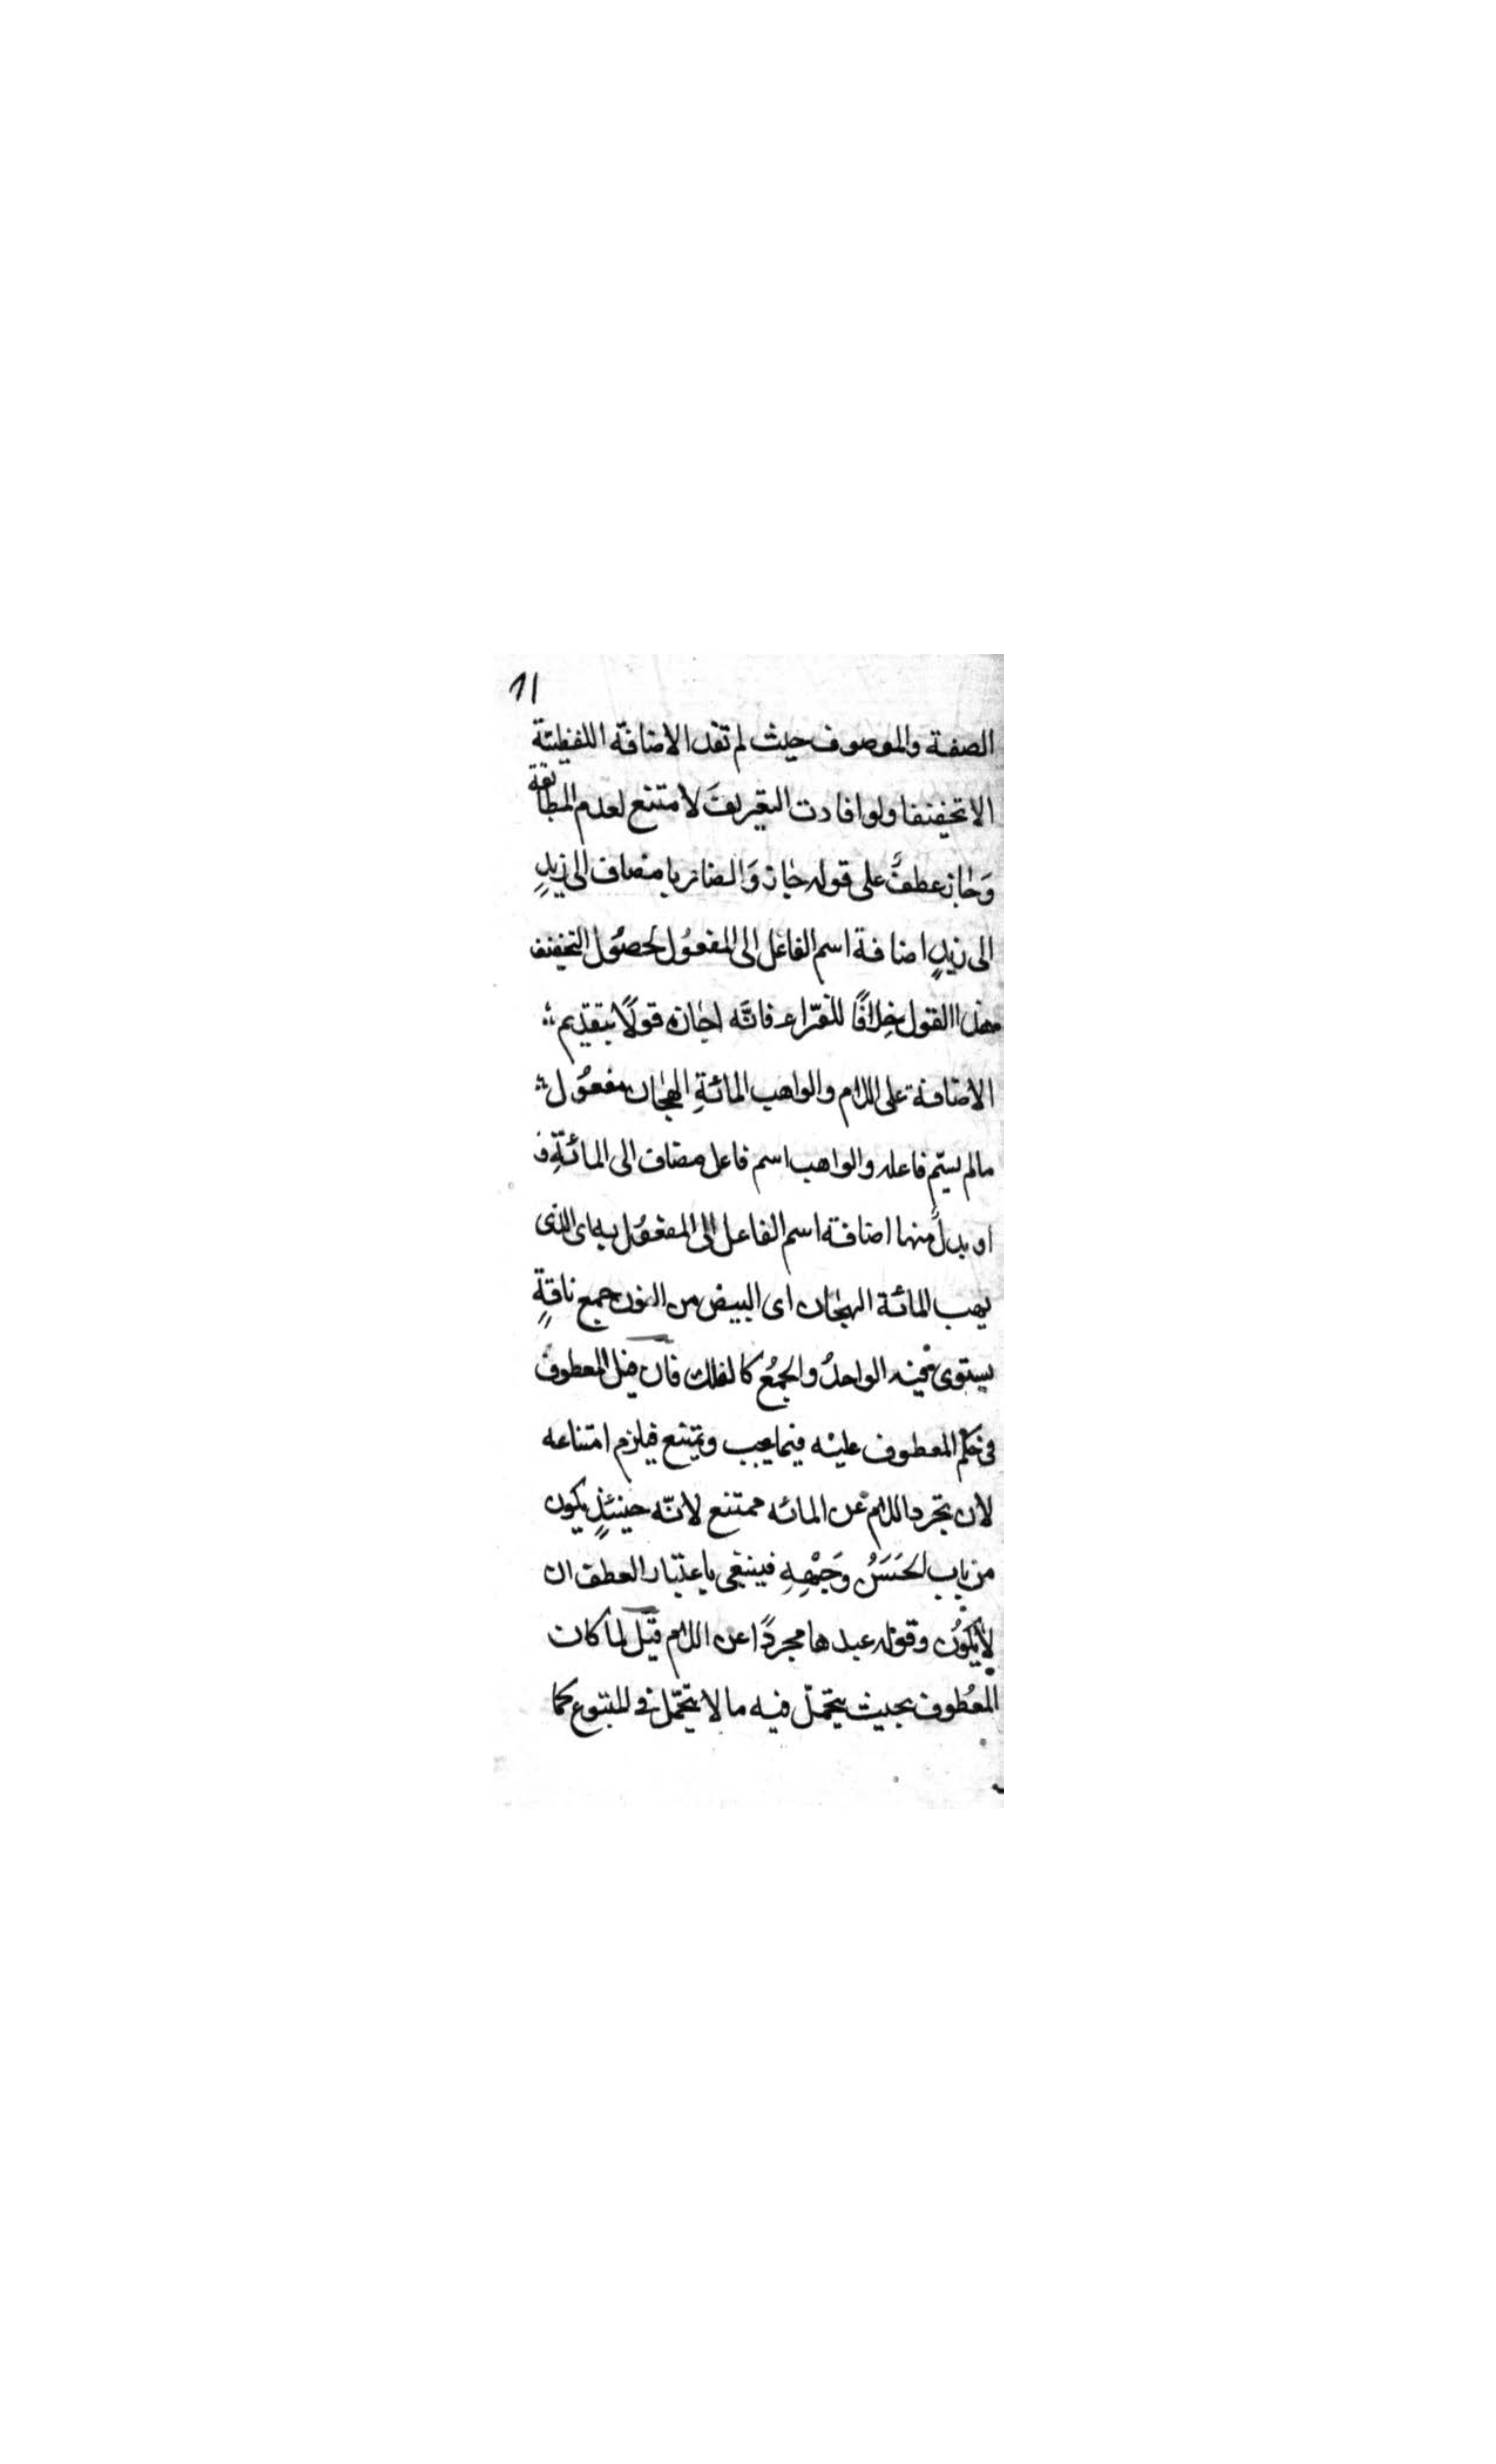 11
الصفة والموصوف حيث لم تفد الاضافة اللفظيّة
الا تخفيفا ولو افادت التعريفَ لامتنع لعدم المطابقة
وَجاز عطفٌ على قوله جاز وَالضاربا مضاف الى زيدٍ
الى زيدٍ اضافة اسم الفاعل الى المفعُول لحصُول التخفيف
هذا القول خِلافًا للفرّاء فانّه اجازه قولًا بتقديم
الاضافة على اللام والواهب المائةِ الهجان مفعُول
مالم يسمّ فاعله والواهب اسم فاعل مضاف الى المائةِ
او بدلٌ منها اضافة اسم الفاعل الى المفعُول به اى الذى
يهب المائة الهجان اى البيض من النوق جمع ناقةٍ
يستوى فيه الواحدُ والجمعُ كالفلك فان قيل المعطوف
فى حكم المعطوف عليه فيما يجب ويمتنع فيلزم امتناعه
لان تجرد اللام عن المائه ممتنع لانّه حينئذٍ يكون
من باب الحَسَنُ وَجْهِهِ فينبغى باعتبار العطف ان
لايكوُن وقوله عبدها مجردًا عن اللام قيل لما كان
المعُطوف بحيث يتحمّل فيه ما لا يتحمّل فى المتبوع كما